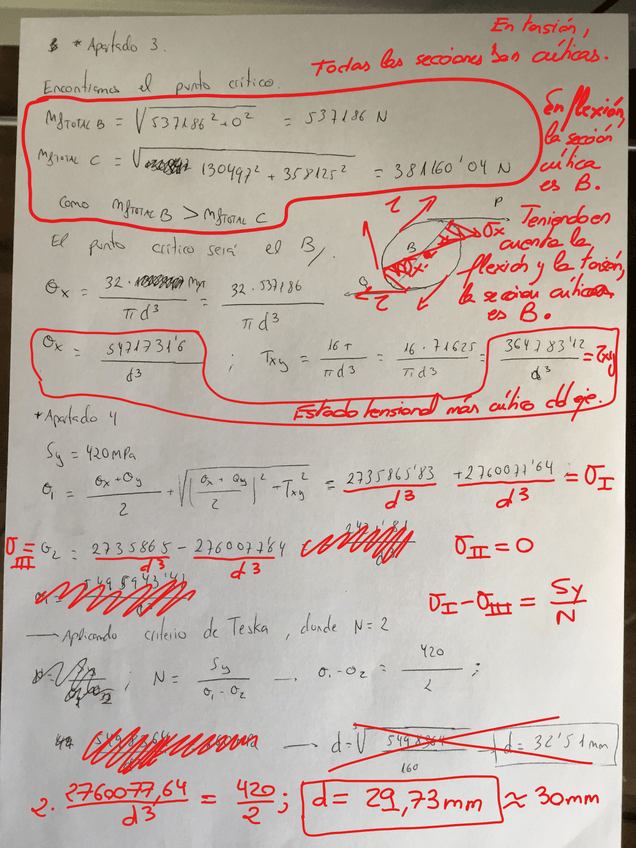 * Apartado 3.
En torsión,
Todas las secciones son críticas.
Encontramos el punto crítico.
MfTOTAL B = √(537186² + 0²) = 537186 N
MfTOTAL C = √(130497² + 358125²) = 381160'04 N
Como MfTOTAL B > MfTOTAL C
En flexión,
la sección
crítica
es B.
El punto crítico será el B
τ
P
σx
B
σx
τ
Q
Teniendo en
cuenta la
flexión y la torsión,
la sección crítica
es B.
σx = 32· Mf / πd³ = 32·537186 / πd³
σx = 5471731'6 / d³ ; Txy = 16T / πd³ = 16·71625 / πd³ = 364783'12 / d³ = τxy
Estado tensional más crítico del eje.
* Apartado 4
Sy = 420 MPa
σ1 = (σx + σy) / 2 + √((σx + σy / 2)² + Txy²) = 2735865'83 / d³ + 2760077'64 / d³ = σI
σIII = σ2 = 2735865 / d³ - 2760077'64 / d³
σII = 0
σI - σIII = Sy / N
→ Aplicando criterio de Teska, donde N=2
; N = Sy / (σ1 - σ2) → σ1 - σ2 = 420 / 2 ;
→ d = √(5498364 / 160) → d = 32'51 mm
2· 2760077,64 / d³ = 420 / 2 ; d = 29,73mm ≈ 30mm